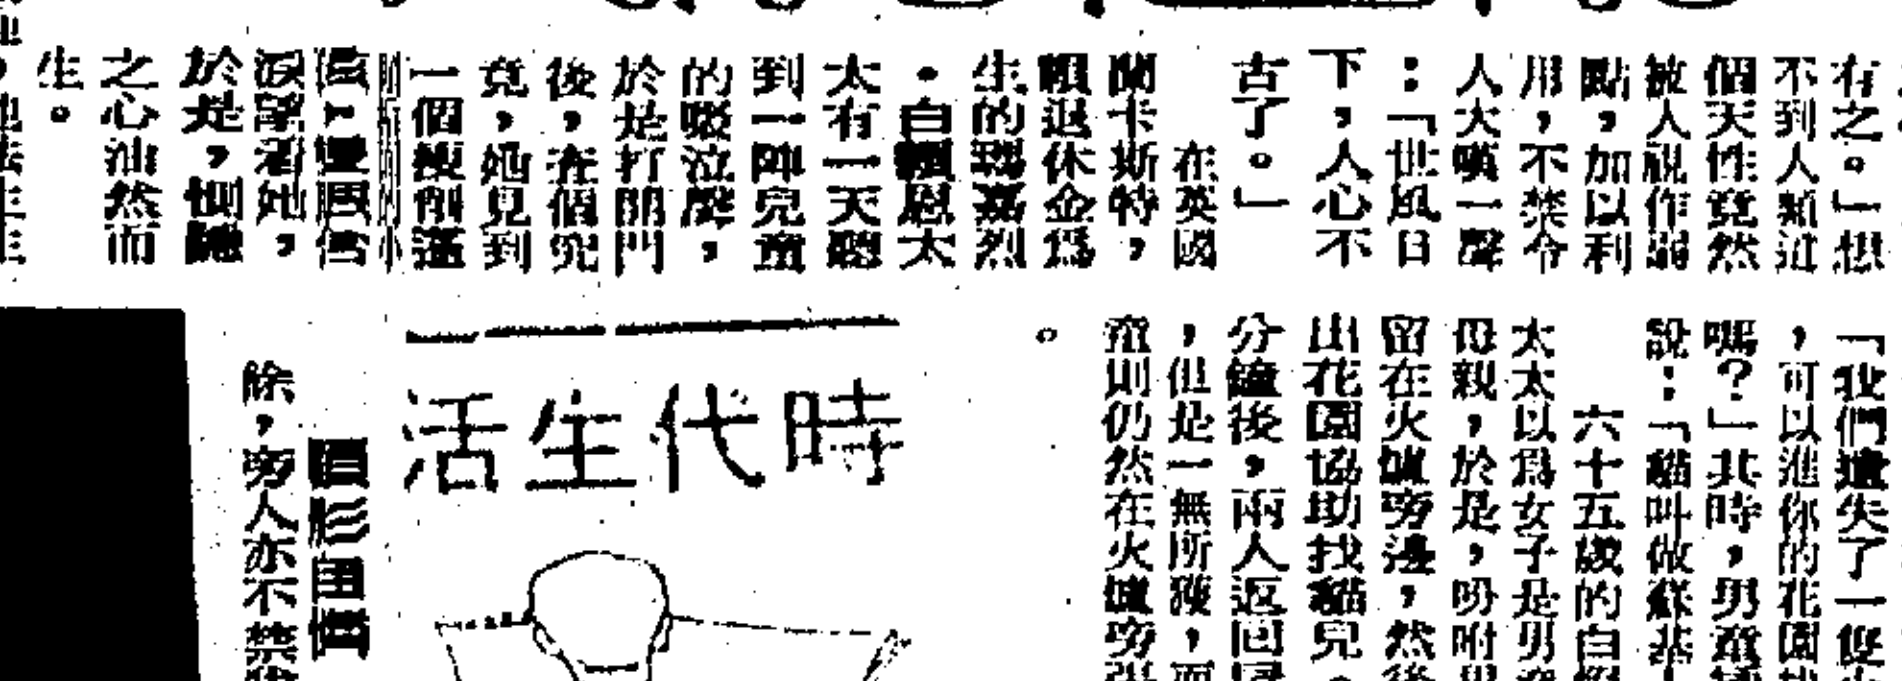 有之。」想
不到人類近
個天性竟然
被人視作弱
點，加以利
用，不禁令
人大嘆一聲
：「世風日
下，人心不
古了。」
在英國
蘭卡斯特，
賴退休金爲
生的瑪嘉烈
・白賴恩太
太有一天聽
到一陣兒童
的啜泣聲，
於是打開門
後，查個究
竟，她見到
一個瘦削滿
淚望着她，
於是，惻隱
之心油然而
生。
「我們遺失了一隻
，可以進你的花園
嗎？」其時，男童
說：「貓叫做蘇
六十五歲的白
太太以爲女子是男
母親，於是，吩咐
留在火爐旁邊，然後
出花園協助找貓兒。
分鐘後，兩人返回
，但是一無所獲，而
童則仍然在火爐旁
。
時代生活
除，旁人亦不禁